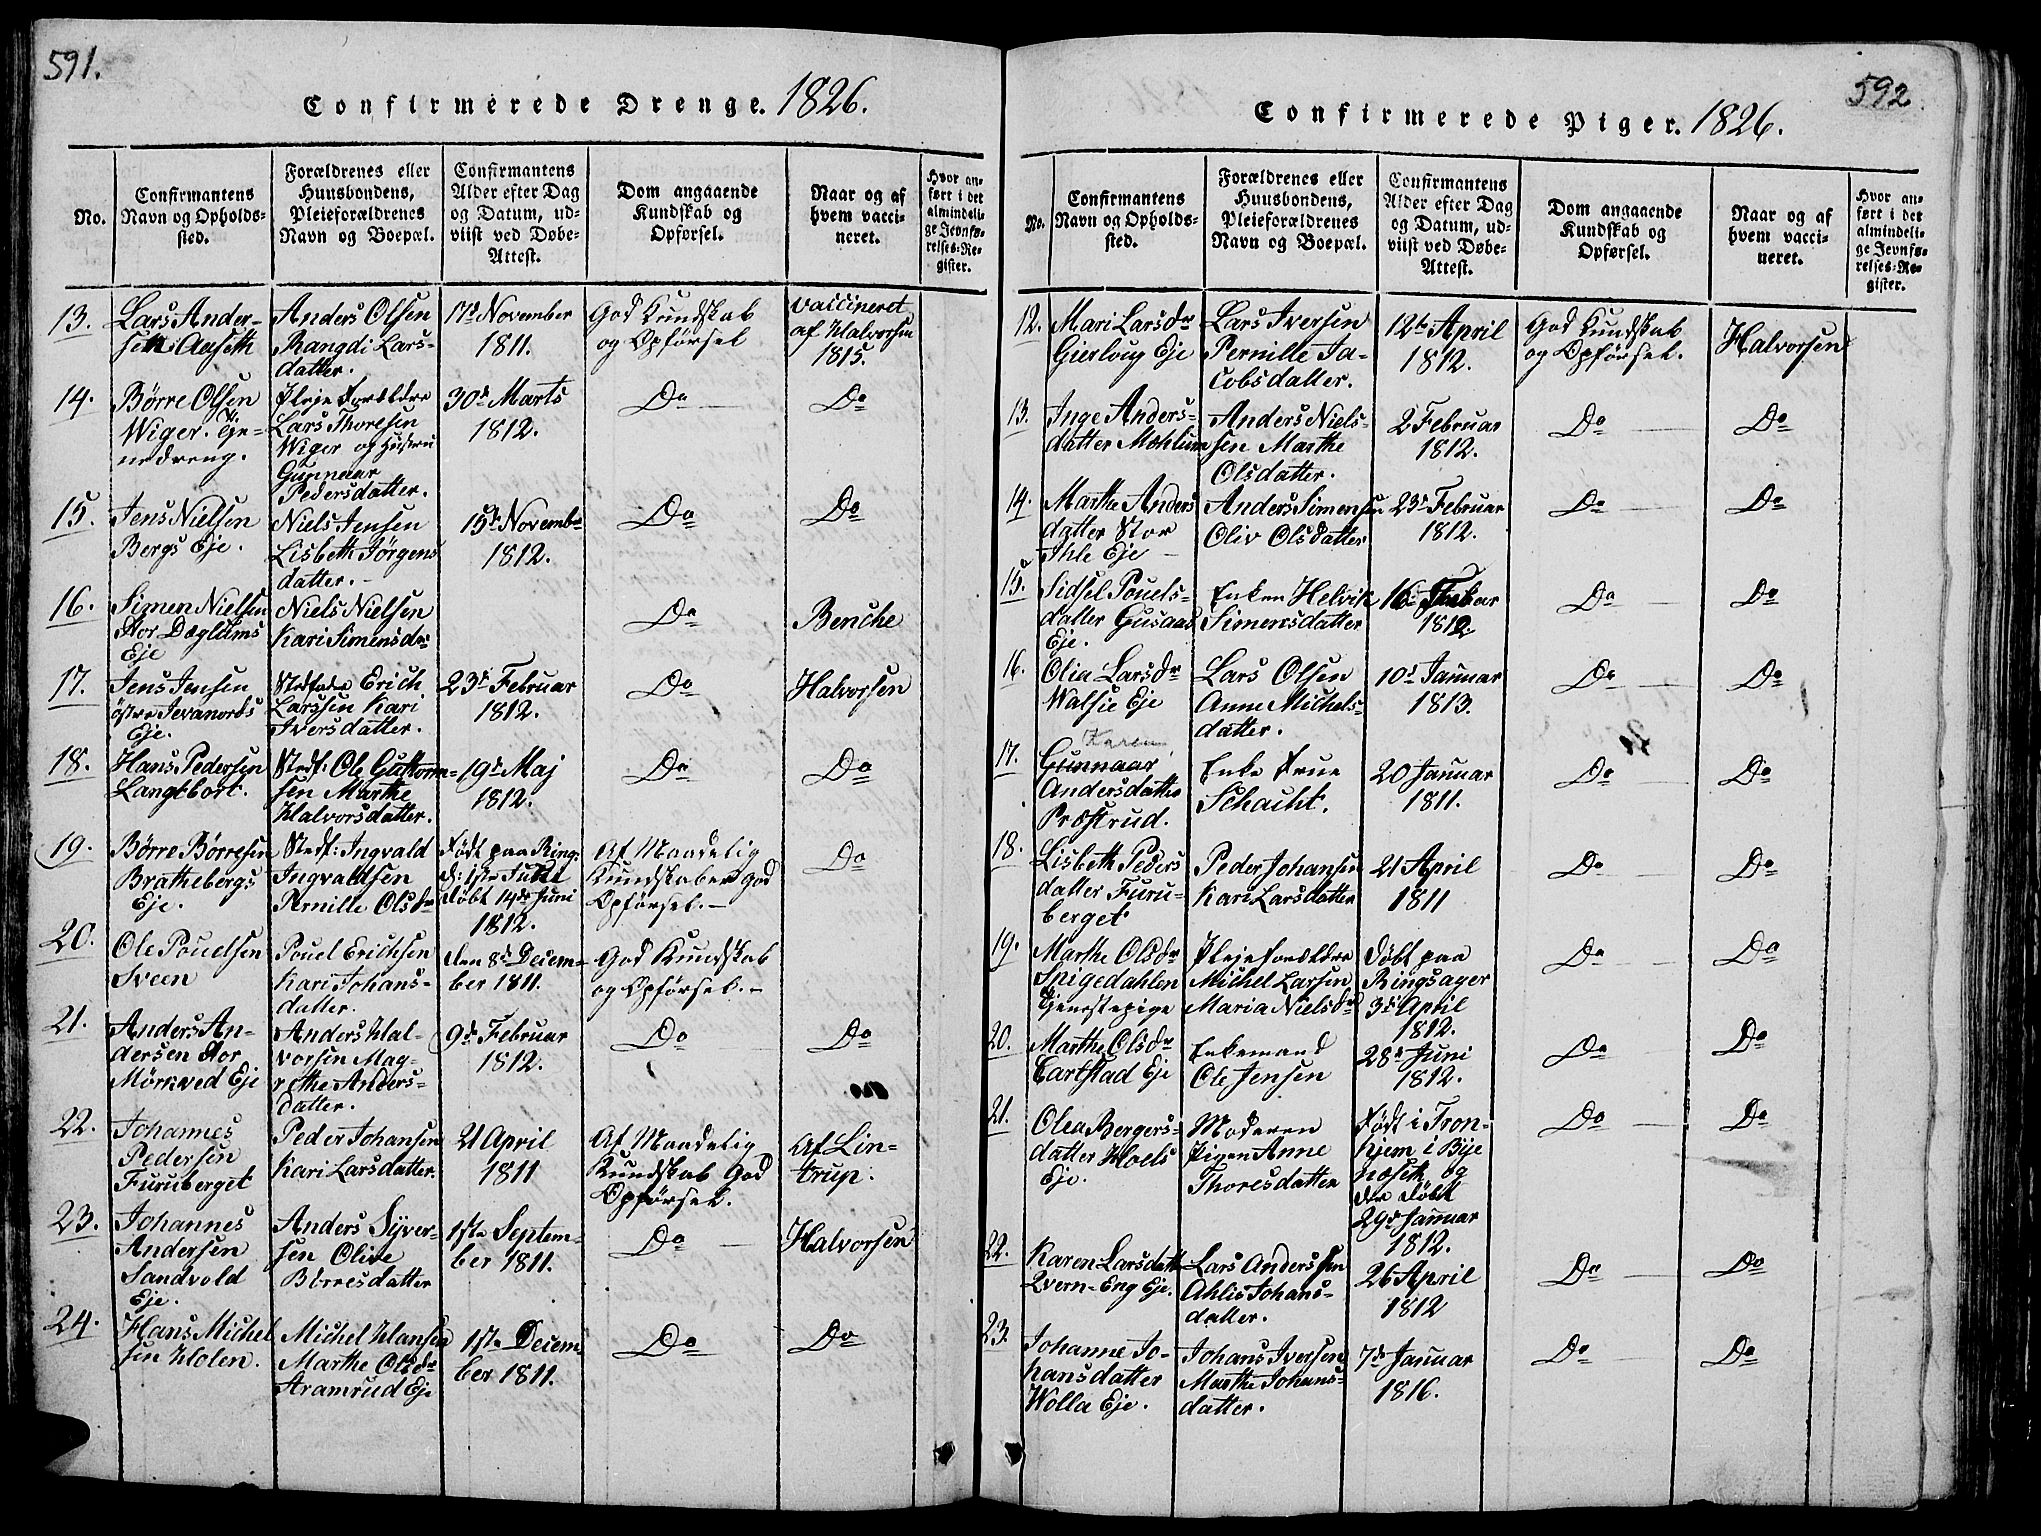 591.
Confirmerede Drenge. 1826.
No.
Confirmantens
Navn og Opholds-
sted.
Forældrenes eller
Huusbondens,
Pleieforældrenes
Navn og Boepæl.
Confirmantens
Alder efter Dag
og Datum, ud-
viist ved Døbe-
Attest.
Dom angaaende
Kundskab og
Opførsel.
Naar og af
hvem vacci-
neret.
Hvor an-
ført i det
almindeli-
ge Jevnfø-
relses-Re-
gister.
13.
Lars Ander-
sen Aaseth
Anders Olsen
Rangdi Lars-
datter.
17de November
1811.
God Kundskab
og Opförsel
vaccineret
af Halvorsen
1815.
14.
Börre Olsen
Wiger. Tje-
nedreng.
Pleje Forældre
Lars Thoresen
Wiger og Hustru
Gunnaar
Pedersdatter.
30te Marts
1812.
Do
Do
15.
Jens Nielsen
Bergs Eje.
Niels Jensen
Lisbeth Jörgens
datter.-
15de Novembr
1812.
Do
Do
16.
Simen Nielsen
Stor Døglums
Eje
Niels Nielsen
Kari Simensdr
Do
Benche
17.
Jens Jensen
östre Jevanords
Eje.
Stedfader Erich
Larssen Kari
Iversdatter.
23de Februar
1812.
Do
Halvorsen
18.
Hans Pedersen
Langebort.
Stedf: Ole Guttorm-
sen Marthe
Halvorsdatter.
19de Maj
1812.
Do
Do
19.
Börre Börresen
Brathebergs
Eje.
Stedf: Ingvald
Ingvaldsen
Pernille Olsdr
Født paa Ring:
d: 1ste
döbt 14de Juni
1812.
Af Maadelig
Kundskaber God
Opförsel.-
Do
20.
Ole Pouelsen
Sveen
Pouel Erichsen
Kari Johans-
datter.
den 8de Decem-
ber 1811.
God Kundskab
og Opförsel.-
21.
Anders An-
dersen Stor
Mörkved Eje
Anders Hal-
vorsen Mag-
rethe Anders-
datter.
9de Februar
1812.
Do
Do
22.
Johannes
Pedersen
Furuberget
Peder Johansen
Kari Larsdatter.
21 April
1811
Af Maadelig
Kundskab God
Opförsel.
Af Lin-
trup.
23.
Johannes
Andersen
Sandvold
Eje.
Anders Syver-
sen Olive
Börresdatter
1ste Septem-
ber 1811.
Do
Halvorsen
24.
Hans Michel
sen Holen.
Michel Hansen
Marthe Olsdr
Aramrud Eje
1ste Decem-
ber 1811.
Do
Do
592.
Confirmerede Piger. 1826.
No.
Confirmantens
Navn og Opholds-
sted.
Forældrenes eller
Huusbondens,
Pleieforældrenes
Navn og Boepæl.
Confirmantens
Alder efter Dag
og Datum, ud-
viist ved Døbe-
Attest.
Dom angaaende
Kundskab og
Opførsel.
Naar og af
hvem vacci-
neret.
Hvor an-
ført i det
almindeli-
ge Jevnfø-
relses-Re-
gister.
12.
Mari Larsdr
Gierloug Eje
Lars Iversen
Pernille Ja-
cobsdatter.
12te April
1812.
God Kundskab
og Opförsel.
Halvorsen
13.
Inge Anders-
datter Mæhlum
Anders Niels-
sen Marthe
Olsdatter.
2 Februar
1812.
Do
Do
14.
Marthe Anders
datter Stor
Ihle Eje
Anders Simensen
Oliv Olsdatter
23de Februar
1812.
Do
Do
15.
Sidsel Pouels-
datter Gusaas
Eje.
Enken Helvik
Simensdatter
16de
1812.
Do
Do
16.
Olia Larsdr
Walsie Eje
Lars Olsen
Anne Michels-
datter.
10de Januar
1813.
Do
Do
17.
Karen
Gunnaar
Andersdatter
Præstrud.
Enke Frue
Schacht.
20 Januar
1811.
Do
Do
18.
Lisbeth Peders
datter Furu-
berget
Peder Johansen
Kari Larsdatter
21 April
1811
Do
Do
19.
Marthe Olsdr
Spigedahlen
Tjenestepige
Plejeforældre
Michel Larsen
Maria Nielsdr
Döbt paa
Ringsager
3de April
1812.
Do
Do
20.
Marthe Olsdr
Carlstad Eje
Enkemand
Ole Jensen
28de Juni
1812.
Do
Do
21.
Olea Bergers-
datter Hoels
Eje.
Moderen
Pigen Anne
Thoresdatter
Född i Tron-
hjem i Bye
næset og
der döbt
29de Januar
1812.
Do
Do
22.
Karen Larsdatt
Qvern-Eng Eje.
Lars Anderssen
Ahlis Johans-
datter.
26 April
1812
Do
Do
23.
Johanne Jo-
hansdatter
Wolla Eje.
Johans Iversen
Marthe Johans-
datter.
7de Januar
1816.
Do
Do